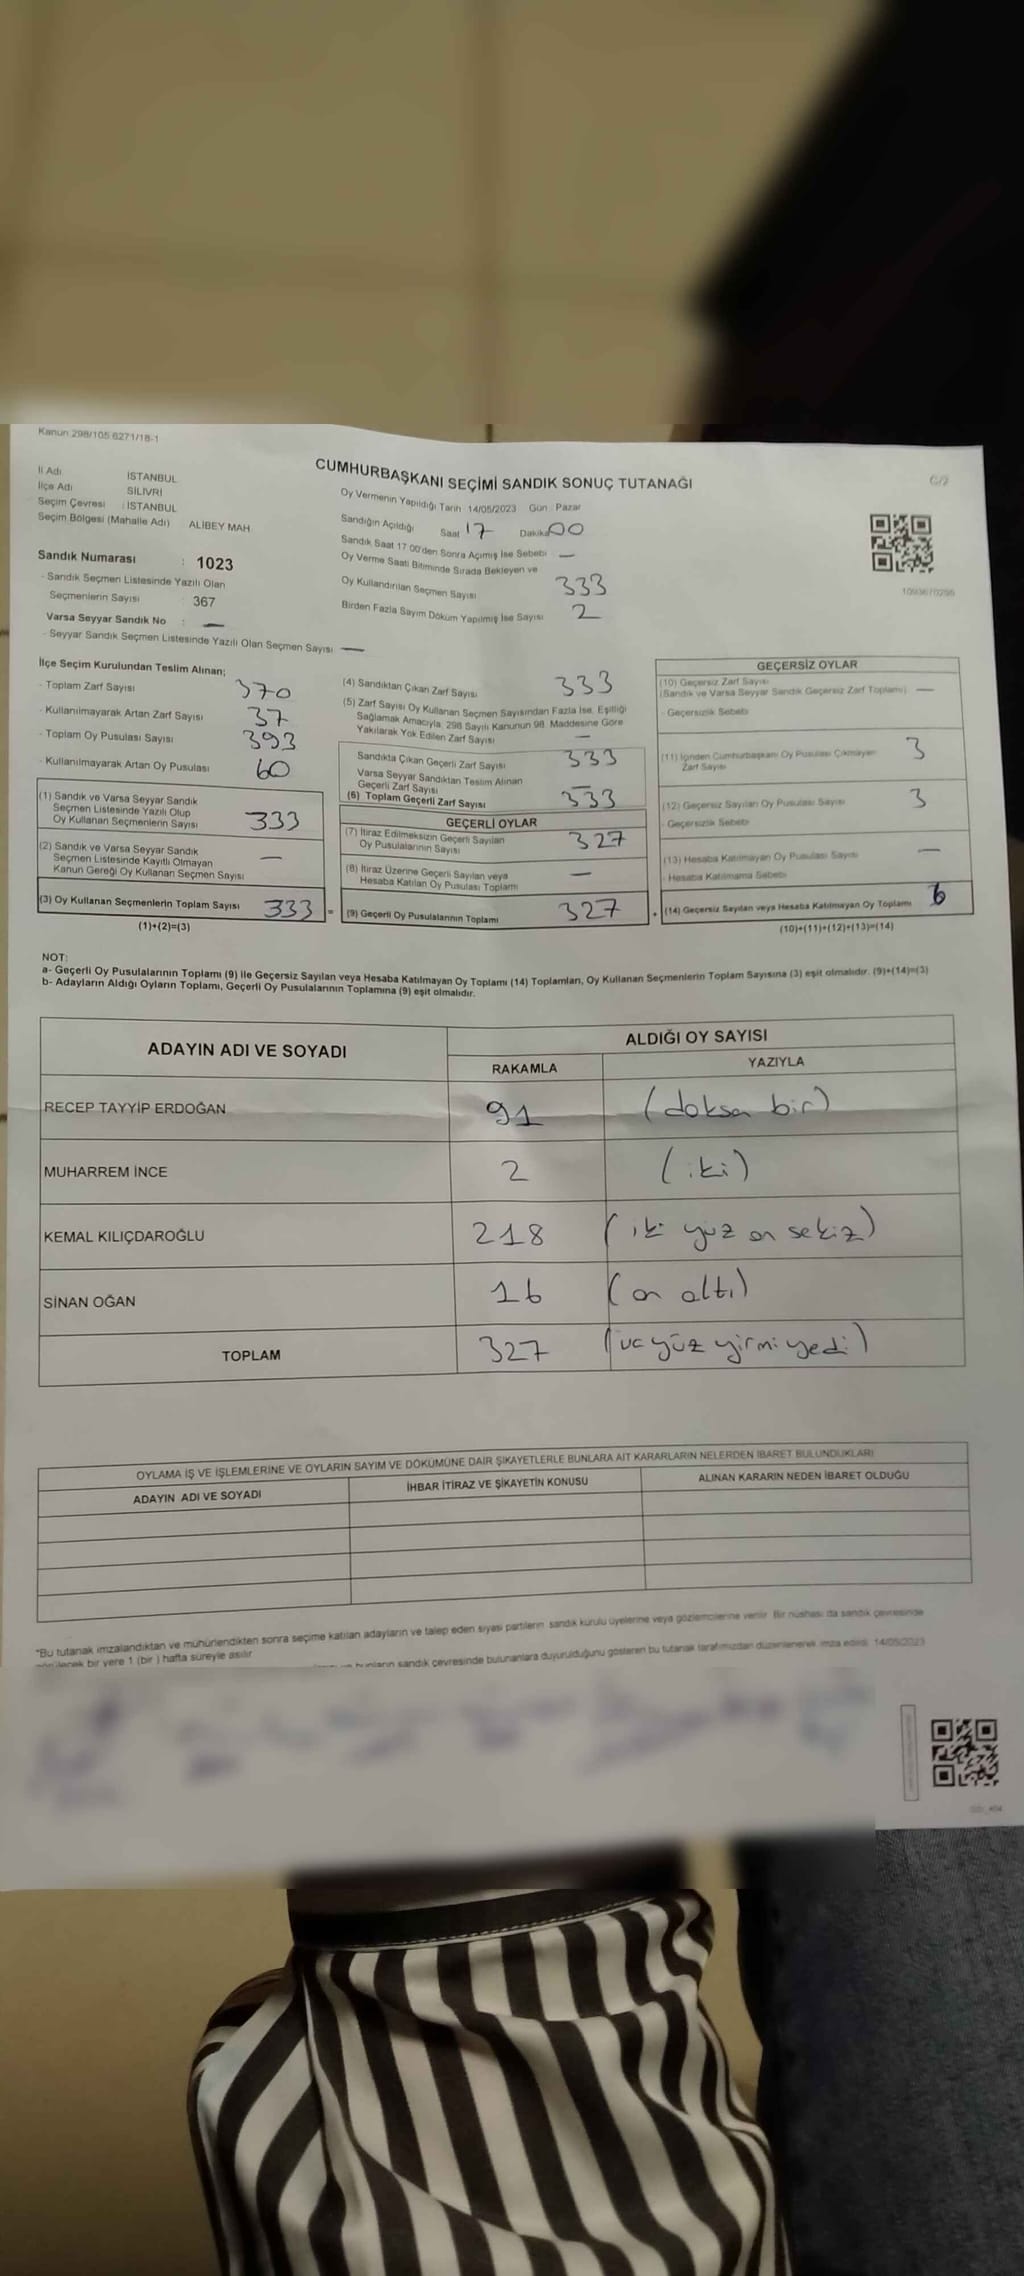 Kanun 298/105 6271/18-1
CUMHURBAŞKANI SEÇİMİ SANDIK SONUÇ TUTANAĞI
C/2
İl Adı İSTANBUL
İlçe Adı SİLİVRİ
Seçim Çevresi : İSTANBUL
Seçim Bölgesi (Mahalle Adı) ALİBEY MAH.
Sandık Numarası : 1023
- Sandık Seçmen Listesinde Yazılı Olan
Seçmenlerin Sayısı : 367
Varsa Seyyar Sandık No : —
- Seyyar Sandık Seçmen Listesinde Yazılı Olan Seçmen Sayısı —
Oy Vermenin Yapıldığı Tarih 14/05/2023 Gün : Pazar
Sandığın Açıldığı Saat 17 Dakika 00
Sandık Saat 17 00'den Sonra Açımış İse Sebebi —
Oy Verme Saati Bitiminde Sırada Bekleyen ve
Oy Kullandırılan Seçmen Sayısı 333
Birden Fazla Sayım Döküm Yapılmış İse Sayısı 2
1093670295
İlçe Seçim Kurulundan Teslim Alınan;
- Toplam Zarf Sayısı 370
- Kullanılmayarak Artan Zarf Sayısı 37
- Toplam Oy Pusulası Sayısı 393
- Kullanılmayarak Artan Oy Pusulası 60
(1) Sandık ve Varsa Seyyar Sandık
Seçmen Listesinde Yazılı Olup
Oy Kullanan Seçmenlerin Sayısı 333
(2) Sandık ve Varsa Seyyar Sandık
Seçmen Listesinde Kayıtlı Olmayan
Kanun Gereği Oy Kullanan Seçmen Sayısı —
(3) Oy Kullanan Seçmenlerin Toplam Sayısı 333 =
(1)+(2)=(3)
(4) Sandıktan Çıkan Zarf Sayısı 333
(5) Zarf Sayısı Oy Kullanan Seçmen Sayısından Fazla İse, Eşitliği
Sağlamak Amacıyla, 298 Sayılı Kanunun 98. Maddesine Göre
Yakılarak Yok Edilen Zarf Sayısı —
Sandıkta Çıkan Geçerli Zarf Sayısı 333
Varsa Seyyar Sandıktan Teslim Alınan
Geçerli Zarf Sayısı —
(6) Toplam Geçerli Zarf Sayısı 333
GEÇERLİ OYLAR
(7) İtiraz Edilmeksizin Geçerli Sayılan
Oy Pusulalarının Sayısı 327
(8) İtiraz Üzerine Geçerli Sayılan veya
Hesaba Katılan Oy Pusulası Toplamı —
(9) Geçerli Oy Pusulalarının Toplamı 327 +
GEÇERSİZ OYLAR
(10) Geçersiz Zarf Sayısı
(Sandık ve Varsa Seyyar Sandık Geçersiz Zarf Toplamı) —
- Geçersizlik Sebebi
(11) İçinden Cumhurbaşkanı Oy Pusulası Çıkmayan
Zarf Sayısı 3
(12) Geçersiz Sayılan Oy Pusulası Sayısı 3
- Geçersizlik Sebebi
(13) Hesaba Katılmayan Oy Pusulası Sayısı —
- Hesaba Katılmama Sebebi
(14) Geçersiz Sayılan veya Hesaba Katılmayan Oy Toplamı 6
(10)+(11)+(12)+(13)=(14)
NOT:
a- Geçerli Oy Pusulalarının Toplamı (9) ile Geçersiz Sayılan veya Hesaba Katılmayan Oy Toplamı (14) Toplamları, Oy Kullanan Seçmenlerin Toplam Sayısına (3) eşit olmalıdır. (9)+(14)=(3)
b- Adayların Aldığı Oyların Toplamı, Geçerli Oy Pusulalarının Toplamına (9) eşit olmalıdır.
ADAYIN ADI VE SOYADI
ALDIĞI OY SAYISI
RAKAMLA YAZIYLA
RECEP TAYYİP ERDOĞAN 91 (doksa bir)
MUHARREM İNCE 2 (iki)
KEMAL KILIÇDAROĞLU 218 (iki yüz on sekiz)
SİNAN OĞAN 16 (on altı)
TOPLAM 327 (üç yüz yirmi yedi)
OYLAMA İŞ VE İŞLEMLERİNE VE OYLARIN SAYIM VE DÖKÜMÜNE DAİR ŞİKAYETLERLE BUNLARA AİT KARARLARIN NELERDEN İBARET BULUNDUKLARI
ADAYIN ADI VE SOYADI İHBAR İTİRAZ VE ŞİKAYETİN KONUSU ALINAN KARARIN NEDEN İBARET OLDUĞU
*Bu tutanak imzalandıktan ve mühürlendikten sonra seçime katılan adayların ve talep eden siyasi partilerin sandık kurulu üyelerine veya gözlemcilerine verilir. Bir nüshası da sandık çevresinde
görülecek bir yere 1 (bir) hafta süreyle asılır
bunların sandık çevresinde bulunanlara duyurulduğunu gösteren bu tutanak tarafımızdan düzenlenerek imza edildi. 14/05/2023